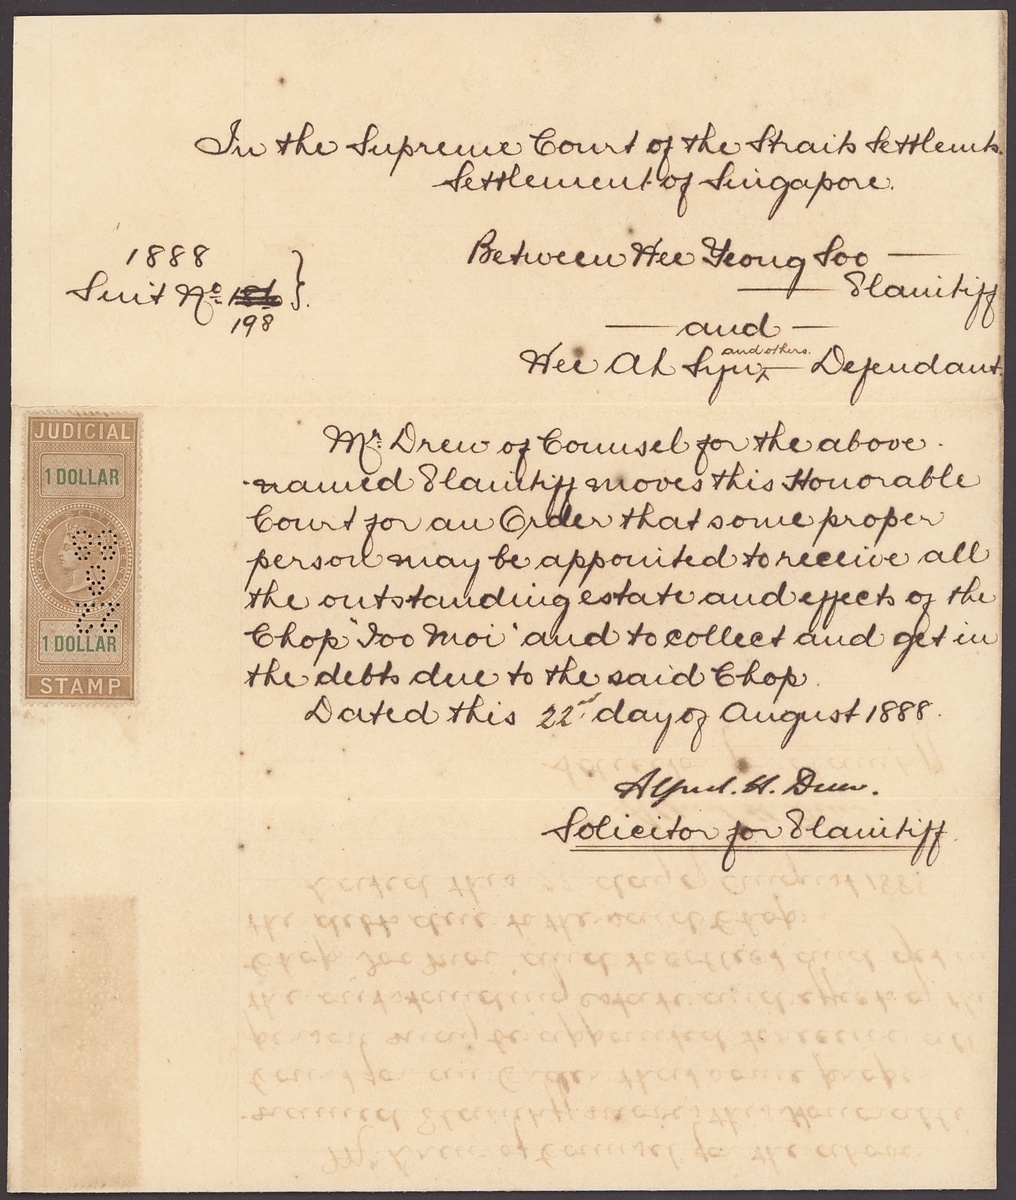 In the Supreme Court of the Straits Settlemts.
Settlement of Singapore.
1888
Suit No. 198
Between Hee Yeong Soo
Plaintiff
and
Hee Ah Syn and others. Defendant.
Mr. Drew of Counsel for the above
named Plaintiff moves this Honorable
Court for an Order that some proper
person may be appointed to receive all
the outstanding estate and effects of the
Chop "Joo Moi" and to collect and get in
the debts due to the said Chop.
Dated this 22nd day of August 1888.
Alfred. H. Drew.
Solicitor for Plaintiff.
JUDICIAL
1 DOLLAR
22
8
88
1 DOLLAR
STAMP